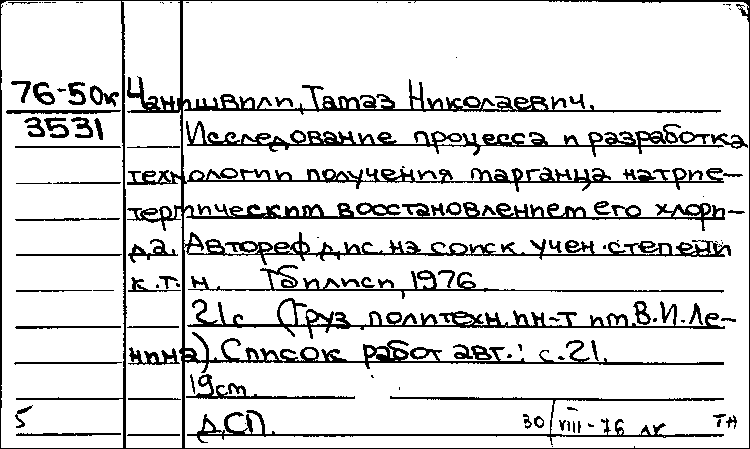 76-50к
3531
Чанишвили, Тамаз Николаевич.
Исследование процесса и разработка
технологии получения марганца натрие-
термическим восстановлением его хлори-
да. Автореф дис. на соиск. учен. степени
к.т.н. Тбилиси, 1976.
21с (Груз. политехн. ин-т им. В.И. Ле-
нина). Список работ авт.: с. 21.
19см.
5 ДСП. 30/VIII-76 ЛК ТН